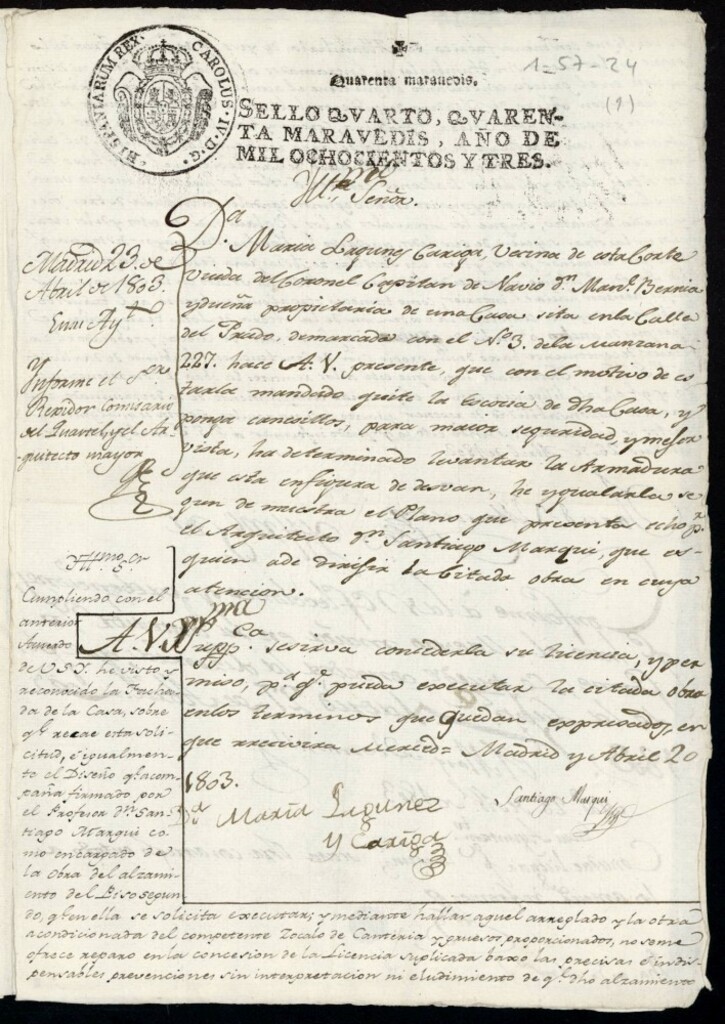 HISPANIARUM REX. CAROLUS IV D. G.
1-57-24
(1)
Quarenta maravedis.
SELLO QVARTO, QVAREN-
TA MARAVEDIS, AÑO DE
MIL OCHOCIENTOS Y TRES.
Yllmo
Señor.
Da.
Maria Lagunez Cariga, Vecina de esta Corte
Viuda del Coronel Capitan de Navio dn Manl. Bernia
y dueña propietaria de una Casa sita en la Calle
del Prado, demarcada con el No 3. de la Manzana
227. hace A. V. presente, que con el motivo de es
tarla mandado quite la Escocia de dha Casa, y
ponga canecillos, para maior seguridad, y mejor
vista, ha determinado levantar la Armadura
que esta en figura de desvan, he ygualarla se
gun demuestra el Plano que presenta echo pr.
el Arquitecto dn Santiago Marqui, que es
quien ade dirijir la Citada obra en cuya
atencion.
A. V. Yma
suppca. se sirva concederla su licencia, y per
miso, pa. qe. pueda executar la citada obra
en los terminos que quedan expresados, en
que rrecivira Merced= Madrid y Abril 20
1803.
da Maria Lagunez
y Cariga
Santiago Marqui
Madrid 23. de
Abril de 1803.
En su Aytto.
Ynforme el Sor
Rexidor Comisario
del Quartel, y el Ar-
quitecto mayor
Yllmo. Sr
Cumpliendo con el
anterior
Acuerdo
de V.S.Y. he visto y
reconocido la Facha
da de la Casa, sobre
qe. recae esta soli-
citud, é igualmen-
te el Diseño qe. acom
paña firmado por
el Profesor dn. San-
tiago Marqui co
mo encargado de
la obra del alzami-
ento del Piso segun-
do, qe. en ella se solicita executar; y mediante hallar aquel arreglado y la obra
acondicionada del competente Zocalo de Canteria y gruesos proporcionados, no se me
ofrece reparo en la concesion de la Licencia suplicada baxo las precisas é indis-
pensables prevenciones sin interpretacion ni eludimiento de qe. dho alzamiento